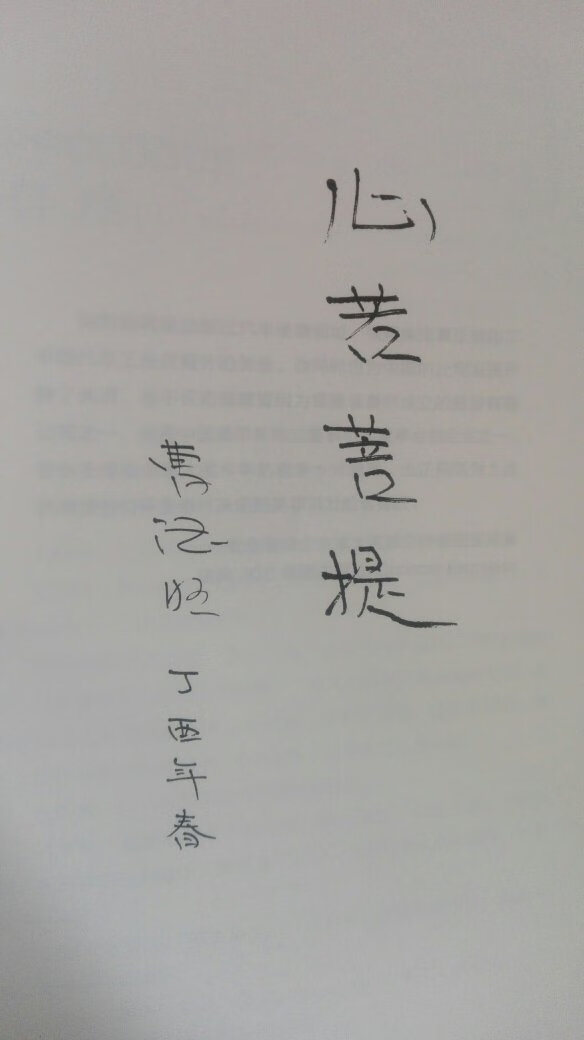 心若菩提
曹德旺 丁酉年春